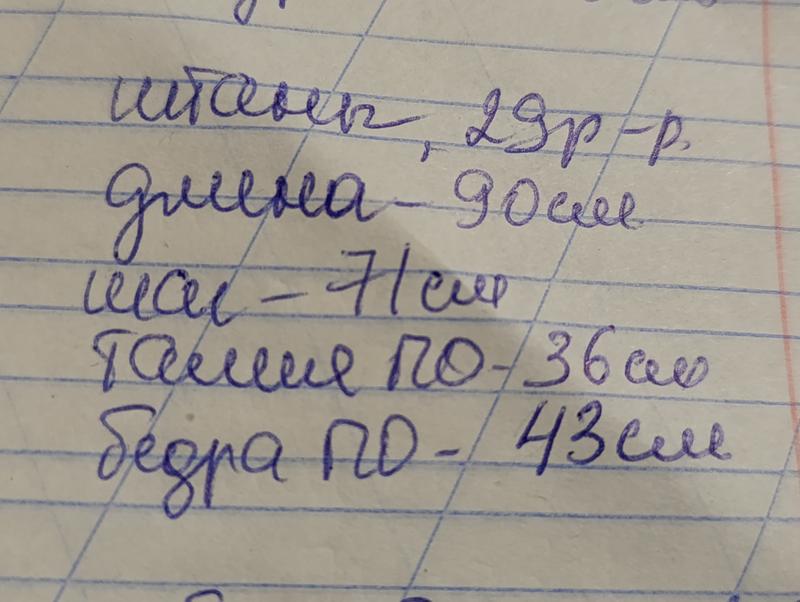 штаны, 29р-р.
длина - 90см
шаг - 71см
талия ПО - 36см
бедра ПО - 43см